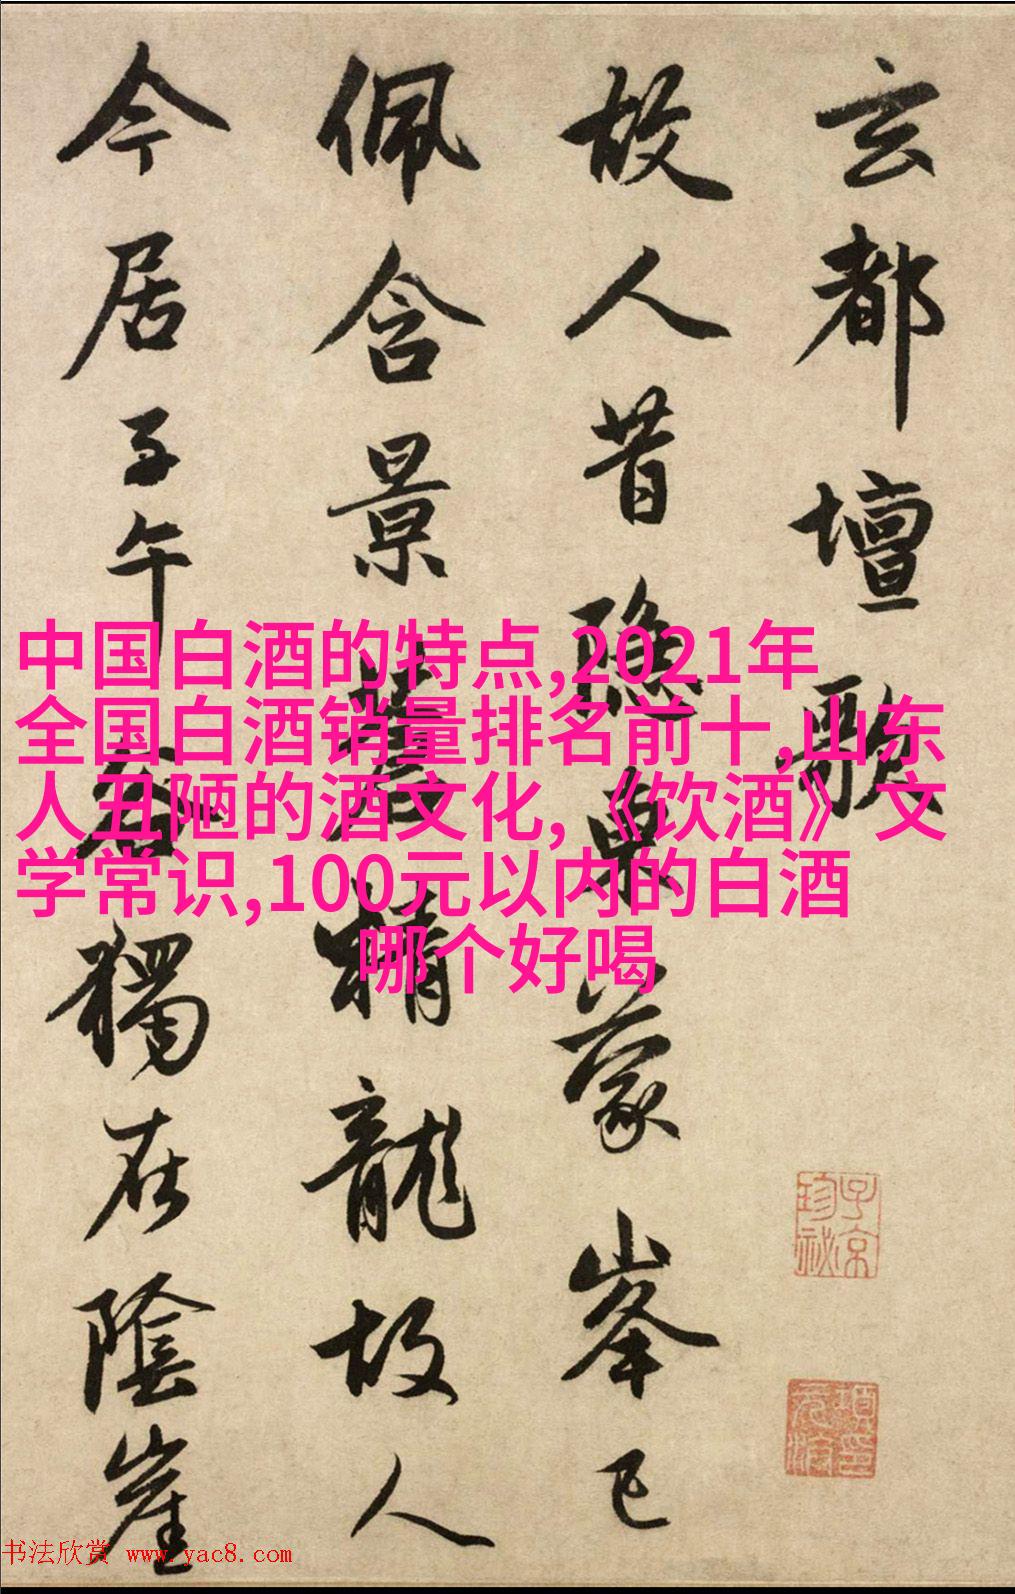 玄都壇歌
故人昔隱東蒙峯已
佩含景蒼精龍故人
今居子午谷獨在陰崖
中国白酒的特点,2021年
全国白酒销量排名前十,山东
人丑陋的酒文化,《饮酒》文
学常识,100元以内的白酒
哪个好喝
子京珍祕
項元汴印
书法欣赏 www.yac8.com